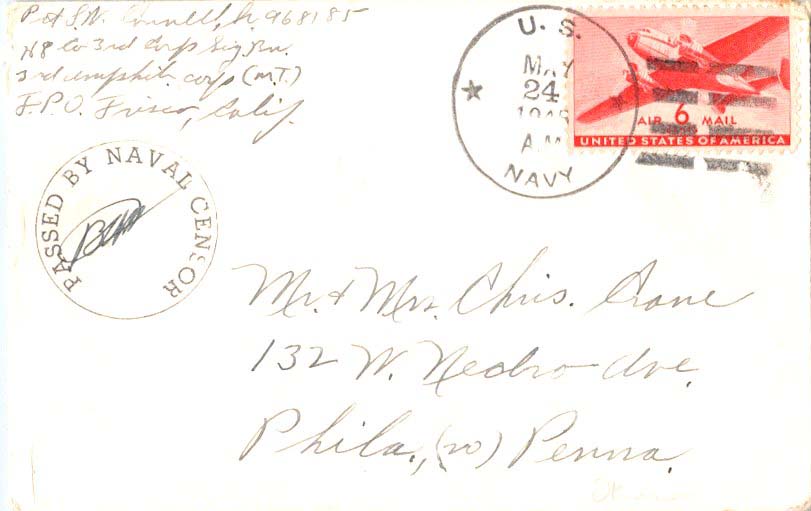 Pvt J.W. Connell, Jr. 968185
H&S Co 3rd Corps Sig. Bn.
3rd Amphib. Corps (M.T.)
F.P.O. Frisco, Calif.
U. S.
MAY
24
A.M.
NAVY
AIR 6 MAIL
UNITED STATES OF AMERICA
PASSED BY NAVAL CENSOR
Mr. & Mrs. Chris. Crane
132 W. Nedro Ave.
Phila., (20) Penna.